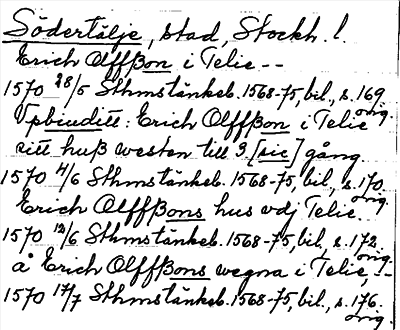 Södertälje, stad, Stockh. l.
Erich Olffßon i Telie --
1570 28/5 Sthmstänkeb. 1568-75, bil., s. 169 orig.
Vpbiuditt: Erich Olffßon i Telie
sitt huß westen till 3 [sic] gång.
1570 4/6 Sthmstänkeb. 1568-75, bil., s. 170. orig.
Erich Olffßons hus vdj Telie.
1570 12/6 Sthmstänkeb. 1568-75, bil., s. 172 orig.
å Erich Olffßons wegna i Telie, --
1570 17/7 Sthmstänkeb. 1568-75, bil., s. 176. orig.